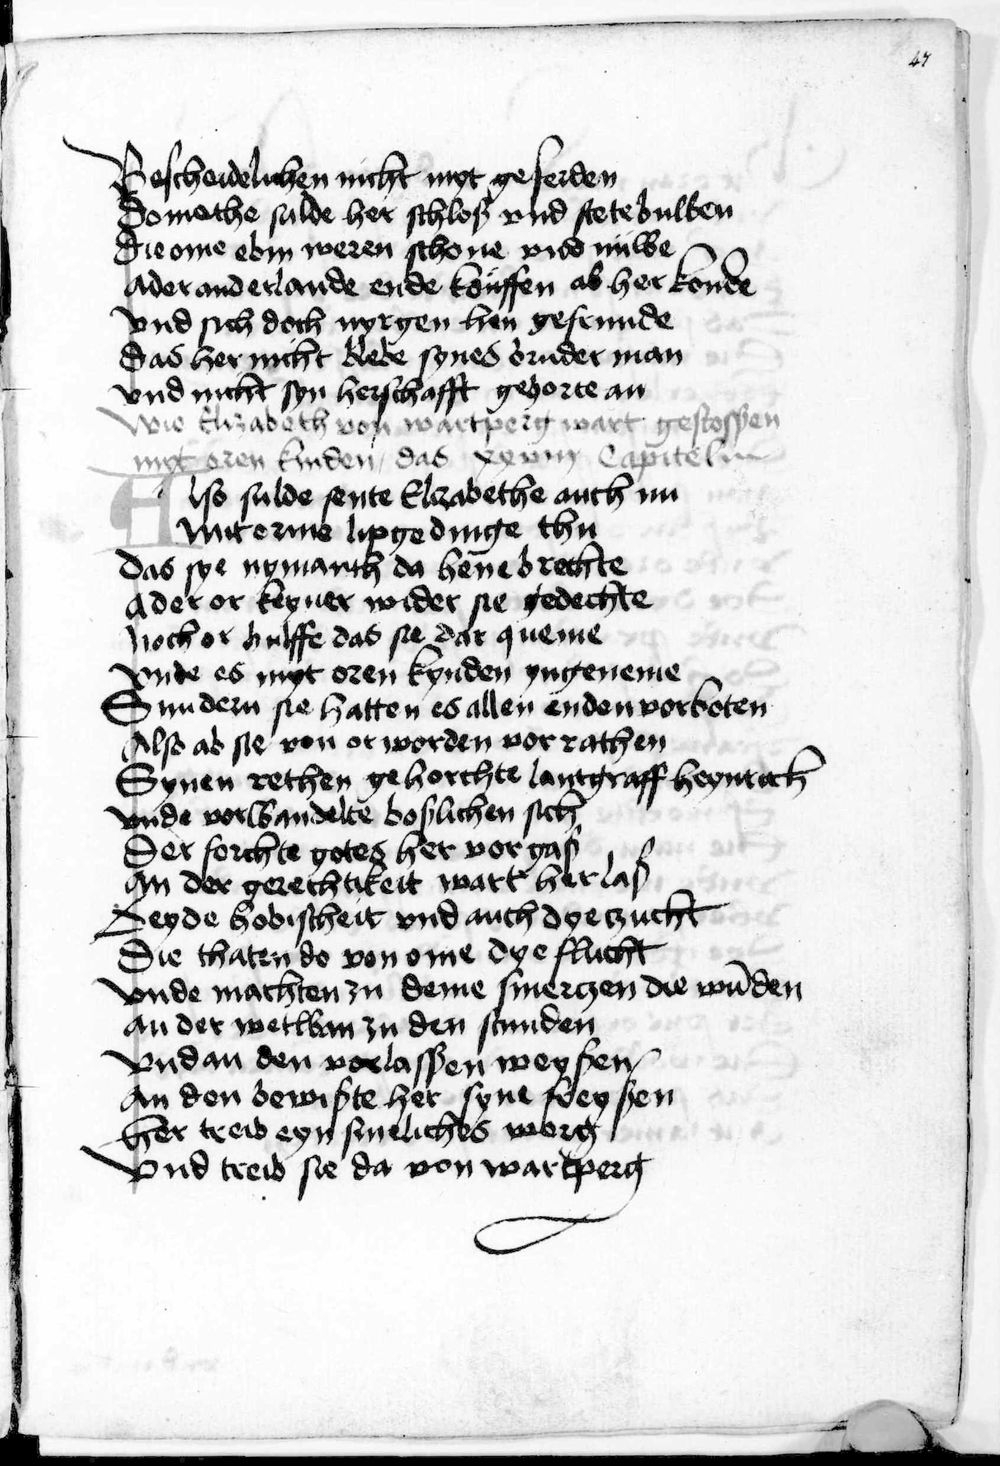 47
Bescheidelichen nicht myt geferden
Domethe sulde her schloß vnd stete bulben
Die ome ebin weren schone vnd nuwe
Ader ander lande ende kouffen ab her konde
Vnd sich doch nyrgen hen gefrunde
Das her nicht blebe synes bruder man
vnd nicht syn herschafft gehorte an
Wie Elizabeth von wartperg wart gestossen
myt oren kinden das xxviij Capitelm
Also sulde sente Elizabethe auch nu
Mit orme lipgedinge thu
Das sye nymanth da hēne brechte
Ader or keyner wider sie gedechte
Noch or hulffe das sie dar queme
vnde es myt oren kynden yngeneme
Sundern sie hatten es allen enden vorboten
Also ab sie von or worden vorrathen
Synen rethen gehorchte lantgraff heynrich
vnde vorwandelte boßlichen sich
Der forchte gotes her vorgaß
An der gerechtikeit wart her laß
Beyde hobischeit vnd auch dye zucht
Die thaten do von ome dye flucht
vnde machten zu deme smerczen die wūden
an der wetwan zu den stunden
vnd an den vorlassen weyßen
An den bewißte her syne freyßen
Her treib eyn smeliches werg
Vnd treib sie da von wartperg